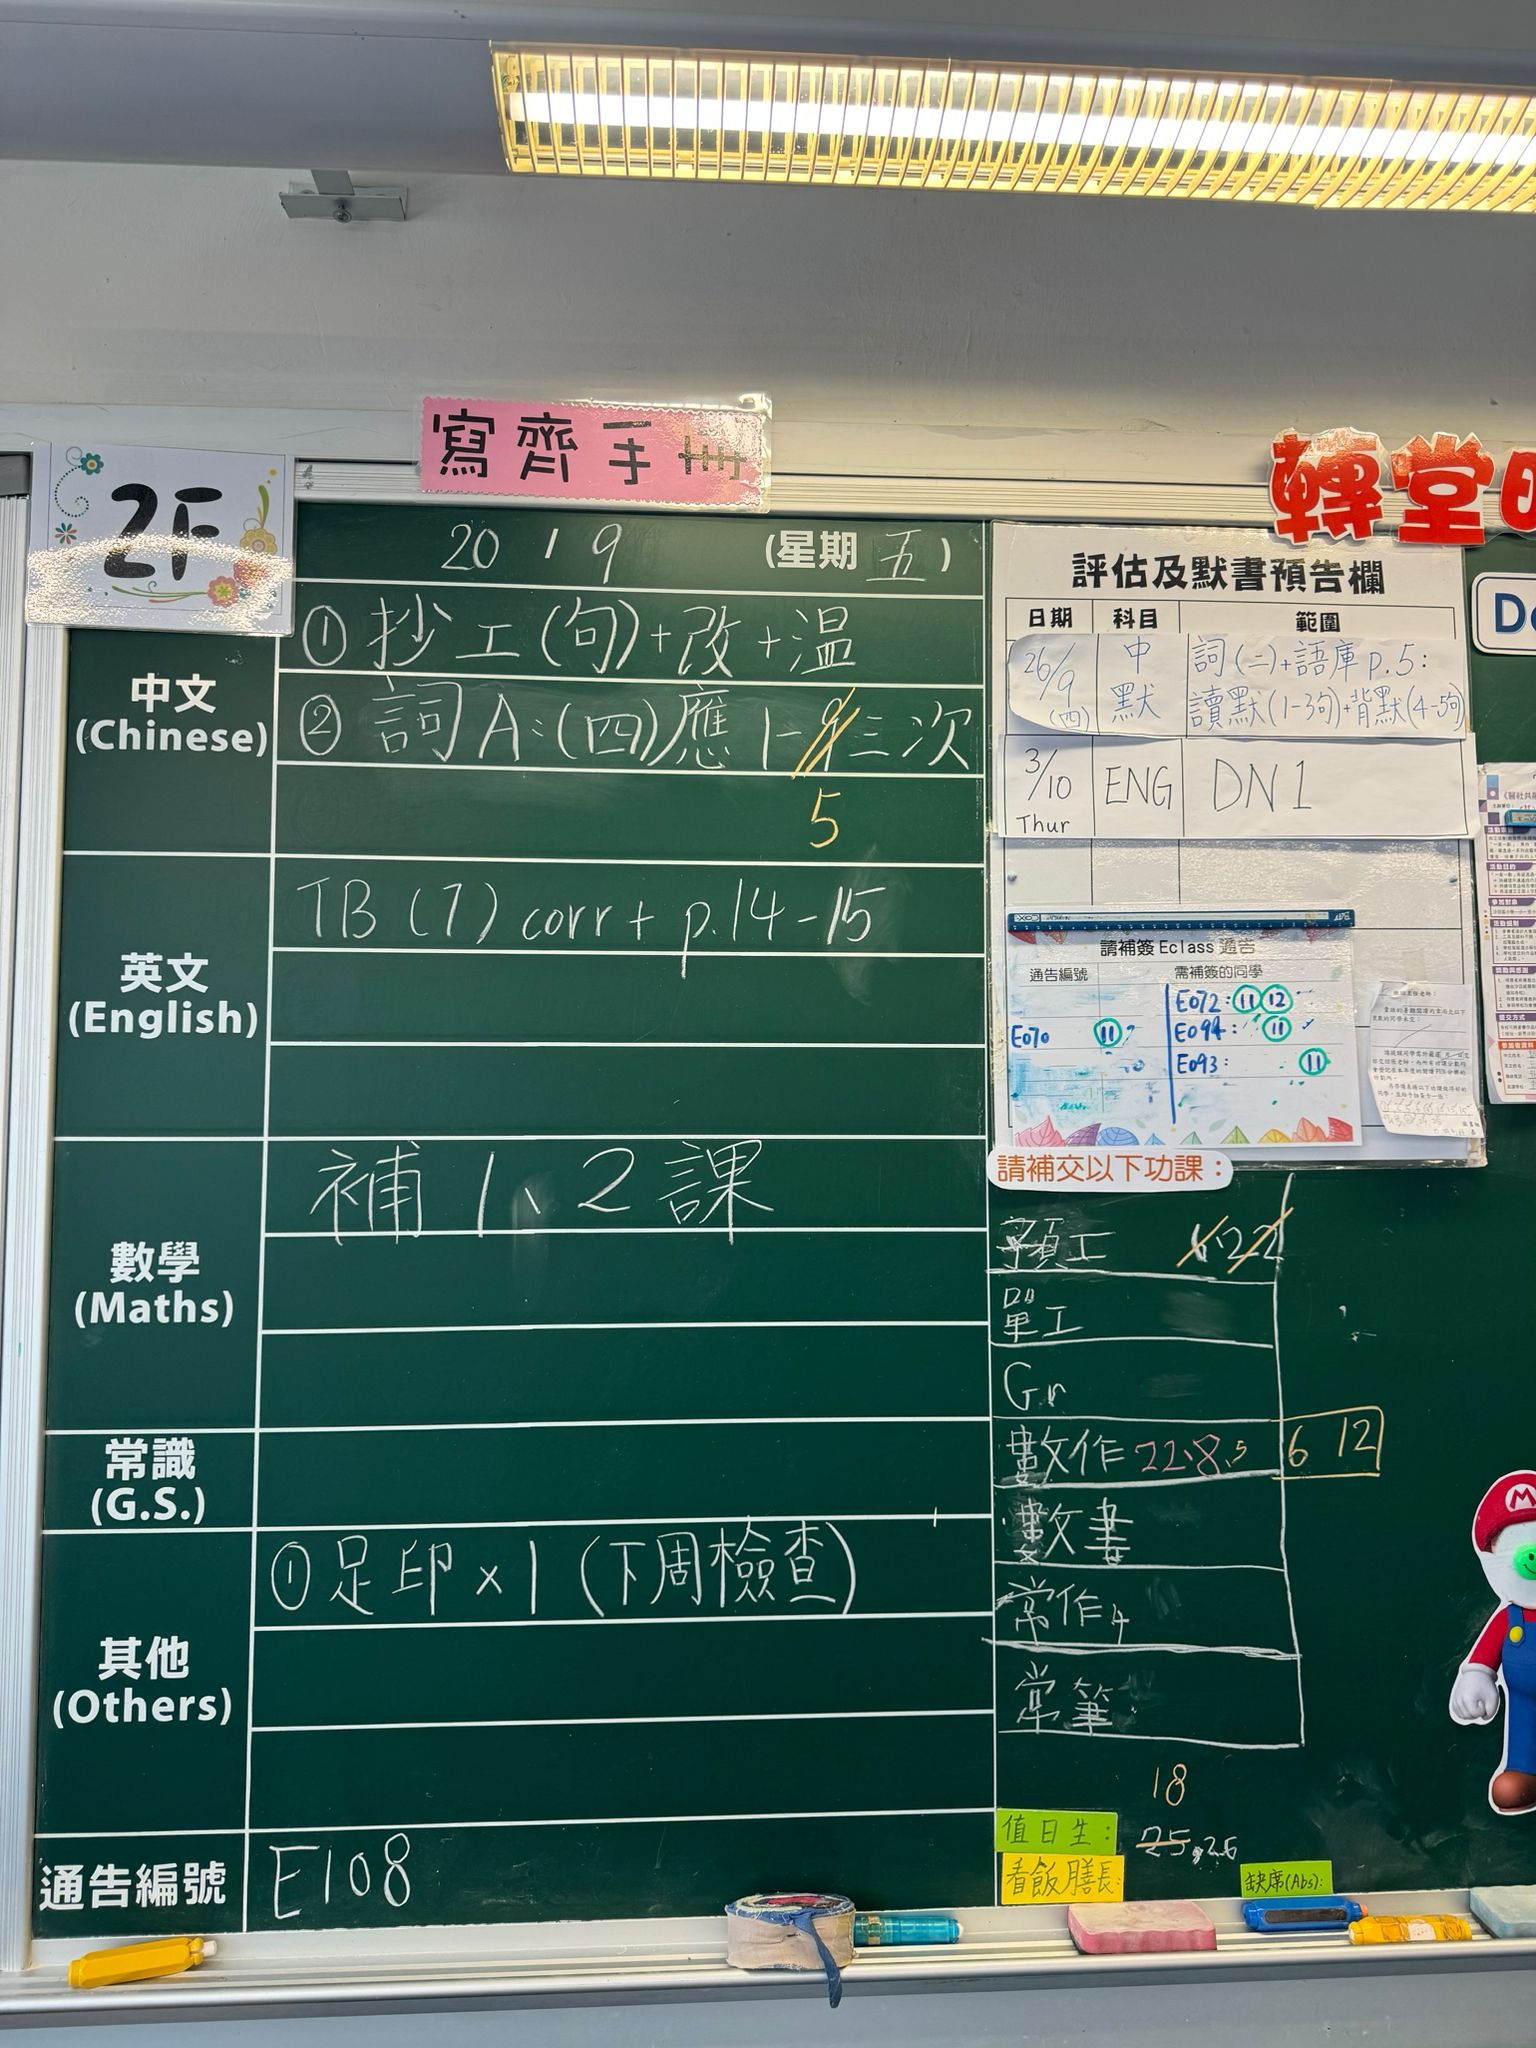 寫齊手冊
2F
20 / 9 (星期 五)
中文
(Chinese)
① 抄工(句)+改+溫
② 詞A:(四)應1-9三次
5
英文
(English)
TB (7) corr + p.14-15
數學
(Maths)
補1、2課
常識
(G.S.)
其他
(Others)
① 足印 x 1 (下周檢查)
通告編號
E108
轉堂
評估及默書預告欄
日期 科目 範圍
26/9 (四) 中默 詞(二)+語庫p.5:
讀默(1-3句)+背默(4-5句)
3/10 Thur ENG DN 1
請補簽 Eclass 通告
通告編號 需補簽的同學
E070 11
E072: 11 12
E094: 11
E093: 11
請補交以下功課：
預工 6.22
單工
Gr
數作 22.8.5 6 12
數書
常作 4
常筆
18
值日生: 25.26
看飯膳長:
缺席(Abs):
M